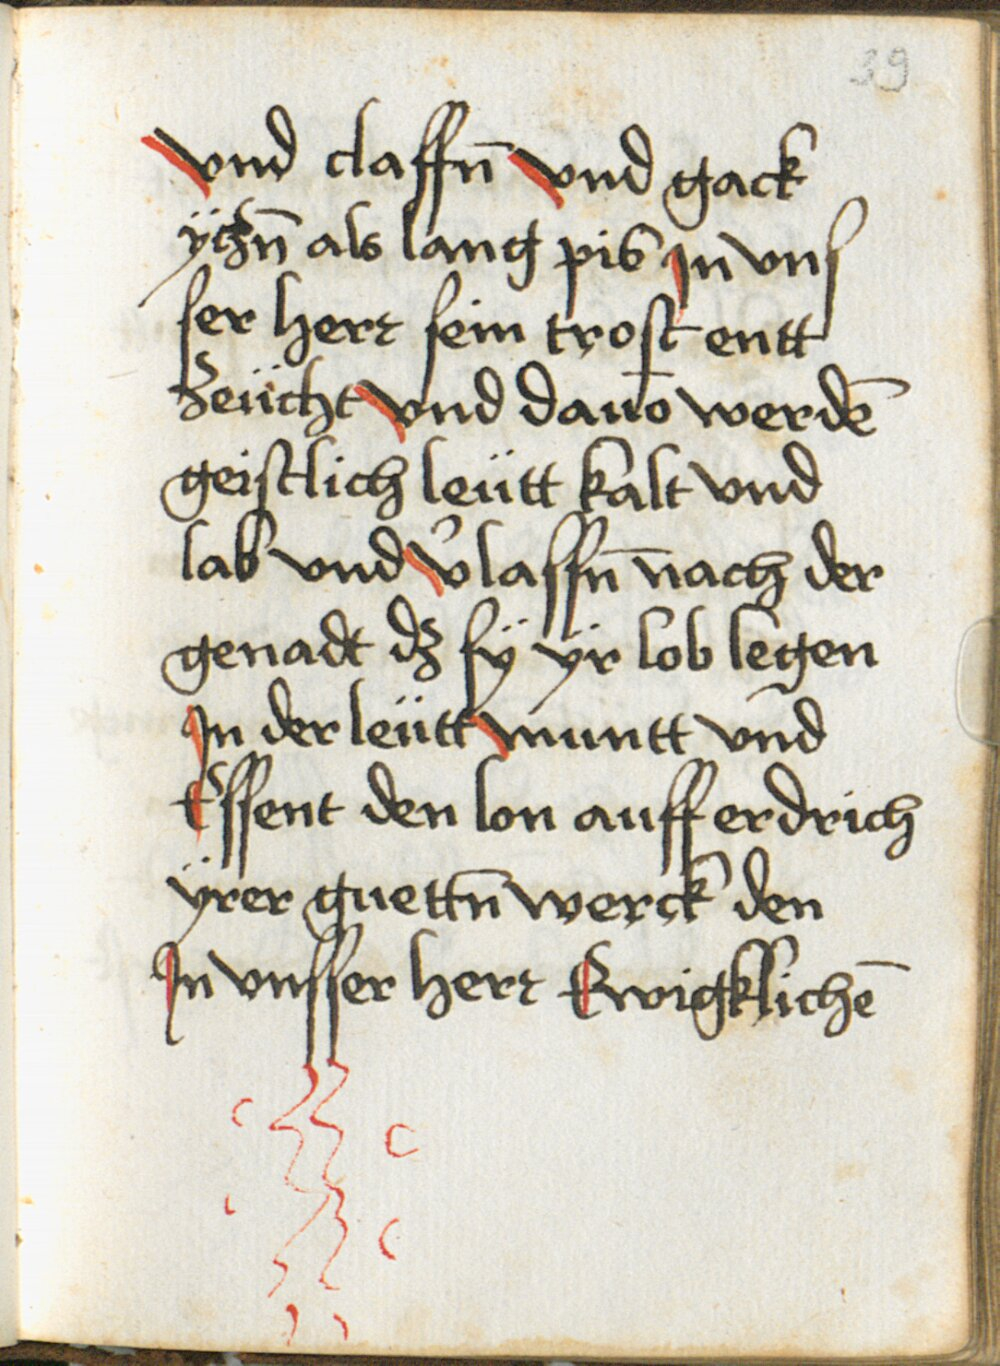 39
vnd claffn̄ vnd gack
ÿczn̄ als lang pis Jn vnſ
ſer herr ſein troſt entt
Zeücht vnd dauō werdē
geiſtlich leütt kalt vnd
lab vnd v̉laſſn̄ nach der
genadt dʒ ſÿ ÿr lob legen
Jn der leütt muntt vnd
Eſſent den lon auff erdrich
ÿrer guettn̄ werck den
Jn vnſſer herr Ewigklichē